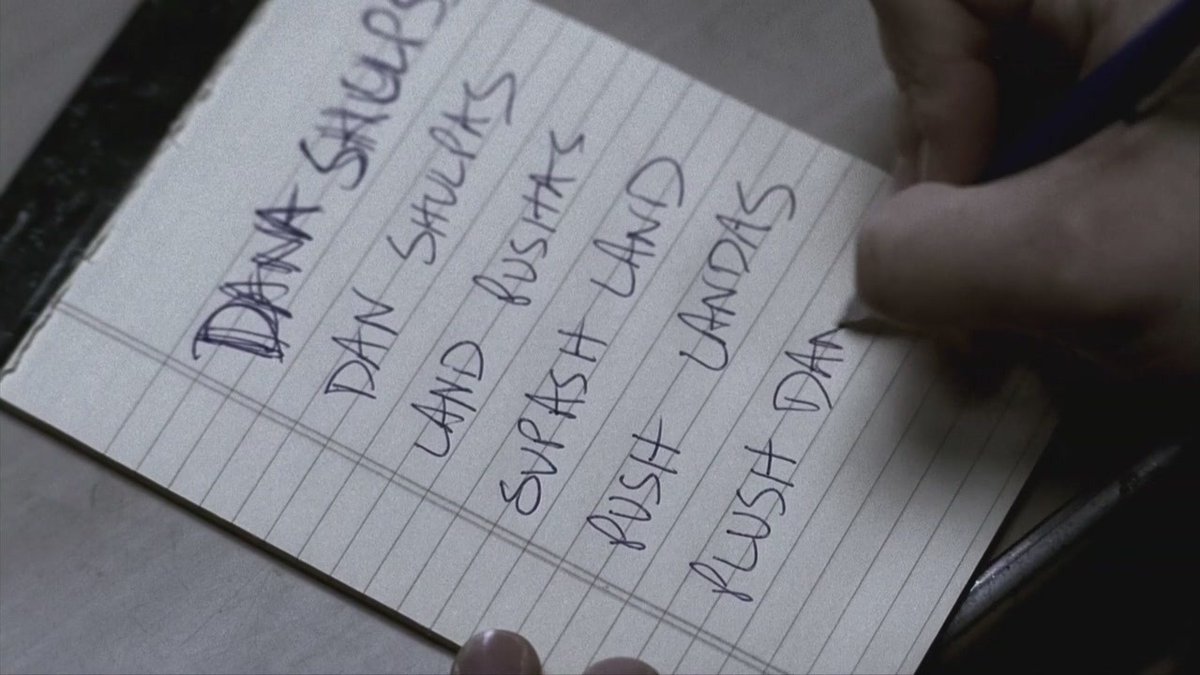 DANA SHULPS
DAN SHULPAS
LAND PUSHAS
SUPASH LAND
PUSH LANDAS
PLUSH DAN